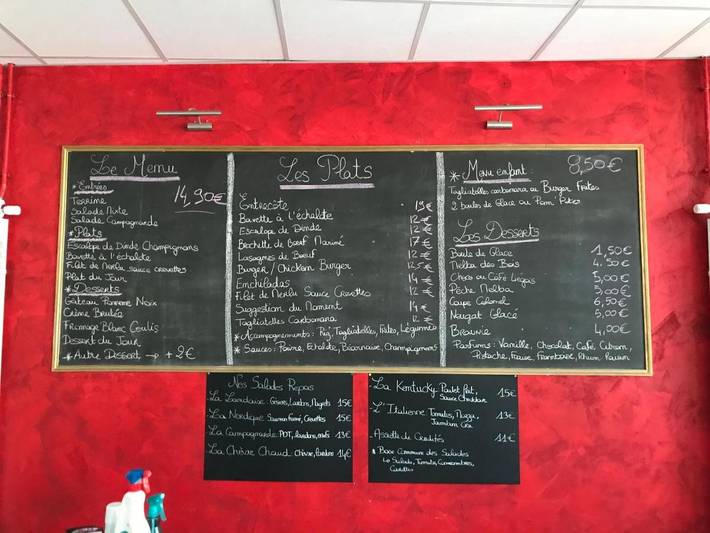 Le Menu
14,90€
* Entrées
Terrine
Salade Mixte
Salade Campagnarde
* Plats
Escalope de Dinde Champignons
Bavette à l'échalote
Filet de Merlu sauce crevettes
Plat du Jour
* Desserts
Gâteau Pomme Noix
Crème Brulée
Fromage Blanc Coulis
Dessert du Jour
* Autre Dessert → + 2€
Les Plats
Entrecôte
Bavette à l'échalote 12€
Escalope de Dinde 12€
Brochette de Boeuf Mariné 17€
Lasagnes de Boeuf 12€
Burger / Chicken Burger
Enchiladas
Filet de Merlu Sauce Crevettes
Suggestion du Moment 14€
Tagliatelles Carbonara
* Accompagnements: Riz, Tagliatelles, Frites, Légumes
* Sauces: Poivre, Echalote, Béarnaise, Champignons
* Menu enfant: 8,50€
Tagliatelles carbonara ou Burger Frites
2 boules de Glace ou Pom'Potes
Les Desserts
Boule de Glace 1,50€
Melba des Bois 4.50€
Choco ou Café Liégeois 5,00€
Pêche Melba 5,00€
Coupe Colonel 6,50€
Nougat Glacé 5,00€
Brownie 4,00€
Parfums: Vanille, Chocolat, Café, Citron,
Pistache, Fraise, Framboise, Rhum Raisin
Nos Salades Repas
La Landaise: Gésiers, Lardons, Magrets 15€
La Nordique Saumon Fumé, Crevettes 15€
La Campagnarde PDT, lardons, oeufs 13€
La Chèvre Chaud Chèvre, lardons 14€
La Kentucky Poulet Pané,
Sauce Cheddar 15€
L'Italienne Tomates, Mozza,
Jambon Cru 13€
Assiette de Crudités 11€
* Base Commune des Salades
Salade, Tomates, Concombres,
Carottes